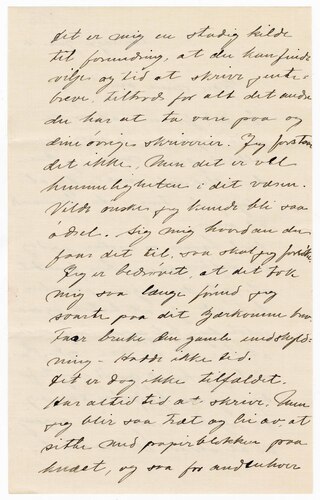 Det er mig en stadig kilde
til forundring, at du kan finde
vilje og tid at skrive
breve, tiltrods for alt det andre
du har at ta vare paa og
dine øvrige skriverier. Jeg forstaar
det ikke, Men det er vel
hemmeligheten i dit væsen.
Vilde ønske jeg kunde bli saa
ædel. Sig mig hvordan du
faar det til, saa skal jeg
Jeg er bedrøvet, at det tok
mig saa længe førend jeg
svarte paa det kjærkomne brev.
Faar bruke den gamle undskyld-
ning - Hadde ikke tid.
Det er dog ikke tilfældet.
Har altid tid at skrive. Men
jeg blir saa træt og lei av at
sitte med papirblokken paa
knæet, og saa for